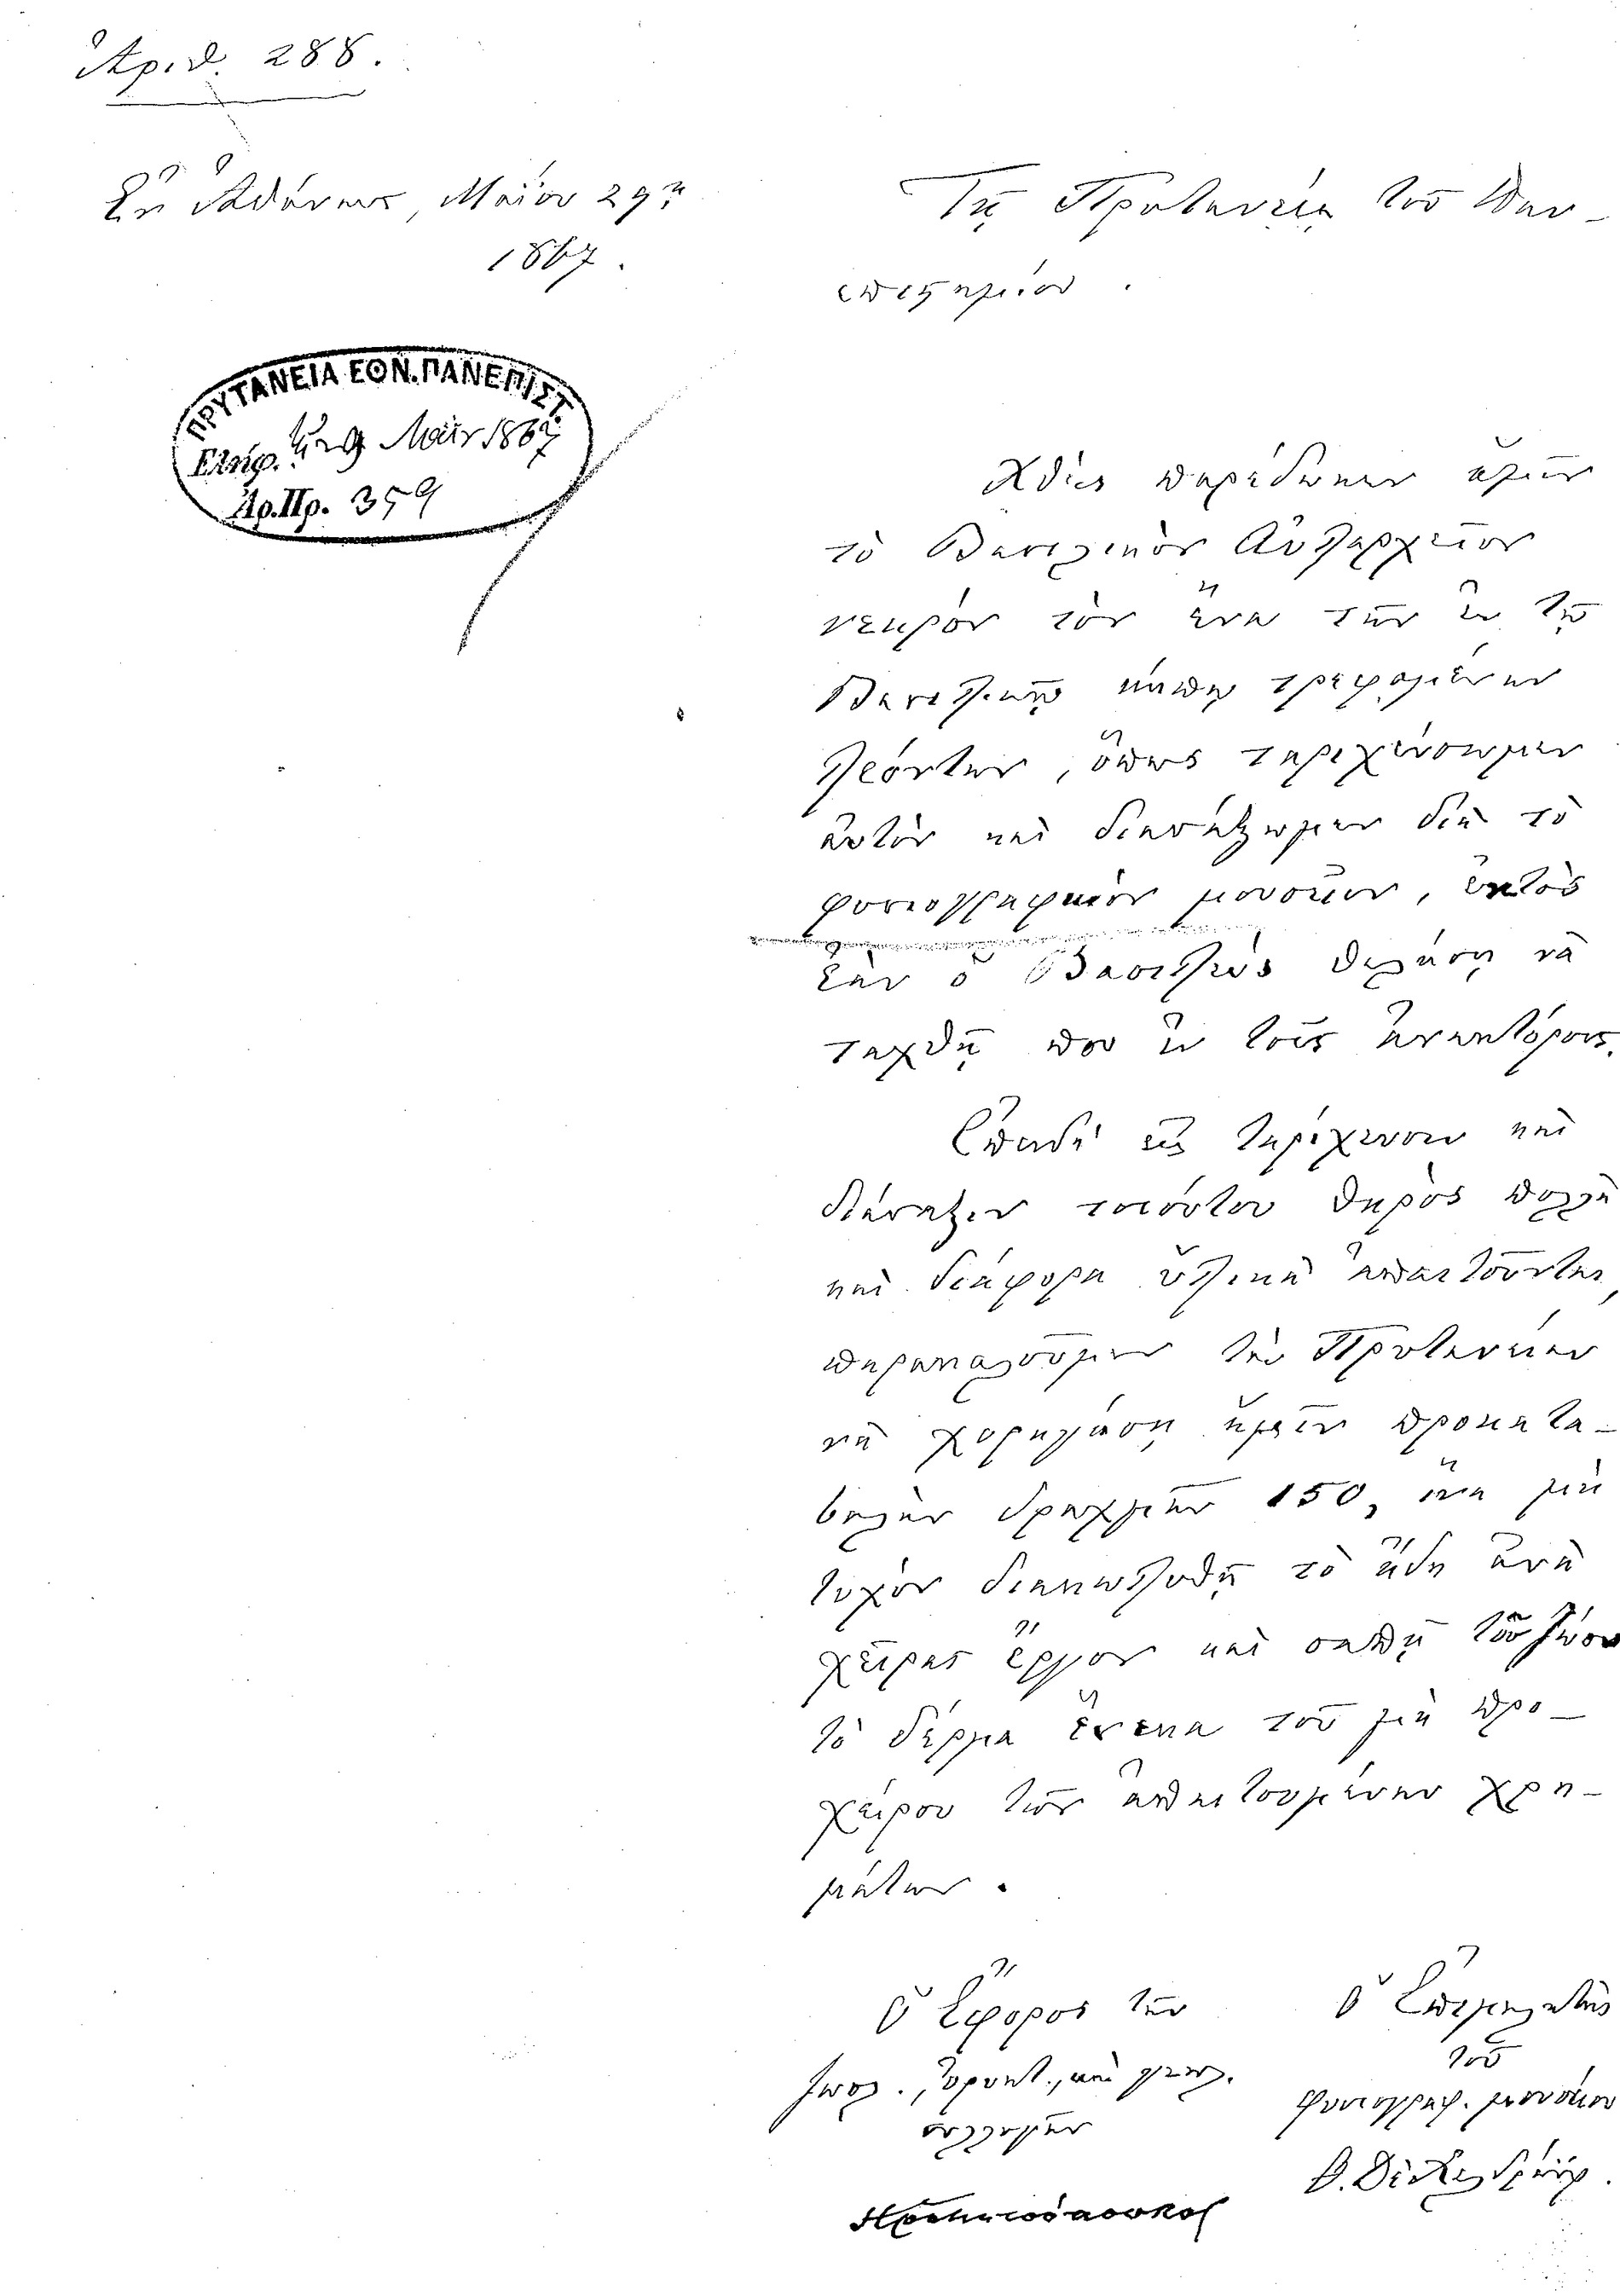 Ἀριθ. 288.
Ἐν Ἀθήναις, Μαΐου 29ῃ
1867.
ΠΡΥΤΑΝΕΙΑ ΕΘΝ. ΠΑΝΕΠΙΣΤ.
Ἐλήφ. τῇ 29 Μαΐου 1867
Ἀρ. Πρ. 359
Τῇ Πρυτανείᾳ τοῦ Παν-
επιστημίου.
Χθὲς παρέδωκεν ἡμῖν
τὸ Βασιλικὸν Αὐλαρχεῖον
νεκρὸν τὸν ἕνα τῶν ἐν τῷ
Βασιλικῷ κήπῳ τρεφομένων
λεόντων, ὅπως ταριχεύσωμεν
αὐτὸν καὶ διανάξωμεν διὰ τὸ
φυσιογραφικὸν μουσεῖον, ἐκτὸς
ἐὰν ὁ Βασιλεὺς θελήσῃ νὰ
ταχθῇ που ἐν τοῖς ἀνακτόροις.
Ἐπειδὴ εἰς ταρίχευσιν καὶ
διάναξιν τοιούτου θηρὸς πολλὰ
καὶ διάφορα ὑλικὰ ἀπαιτοῦνται,
παρακαλοῦμεν τὴν Πρυτανείαν
νὰ χορηγήσῃ ἡμῖν προκατα-
βολὴν δραχμῶν 150, ἵνα μὴ
τυχὸν διακωλυθῇ τὸ ἤδη ἀνὰ
χεῖρας ἔργον καὶ σαπῇ τοῦ ζώου
τὸ δέρμα ἕνεκα τοῦ μὴ προ-
χείρου τῶν ἀπαιτουμένων χρη-
μάτων.
Ὁ Ἔφορος τῶν
ζωολ., ὀρυκτ., καὶ γεωλ.
συλλογῶν
Ὁ Ἐπιμελητὴς
τοῦ
φυσιογραφ. μουσείου
Θ.